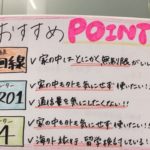 おすすめPOINT
回線
✓家の中はとにかく無制限がいい
ター
201
✓家の中も外も気にせず使いたい!!
✓通信量を気にしたくない!!
ター
4
✓家の中も外も気にせず使いたい!
✓海外旅行・留学検討している!